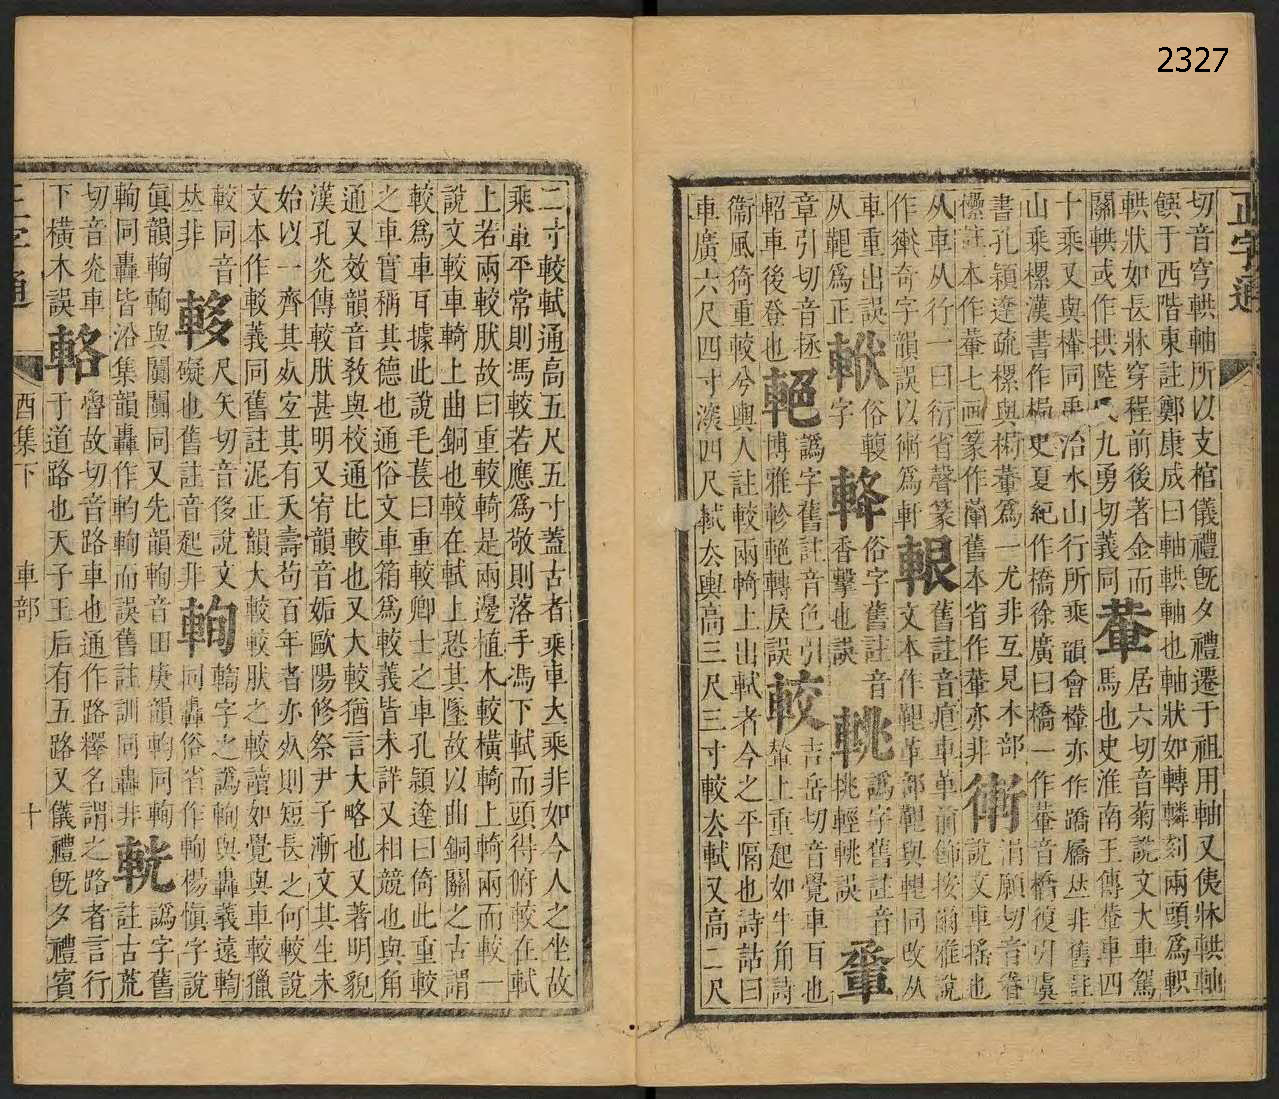 2327
正字通
切音穹輁軸所以支棺儀禮旣夕禮遷于祖用軸又侇牀輁軸
饌于西階東註鄭康成曰軸輁軸也軸狀如轉轔刻兩頭爲軹
輁狀如長牀穿桯前後著金而關輁或作拱陸氏九勇切義同
輂居六切音菊說文大車駕馬也史淮南王傳輂車四
十乘又與檋同禹治水山行所乘韻會檋亦作蹻屩𠀤非舊註
山乘樏漢書作梮史夏紀作橋徐廣曰橋一作輂音橋復引虞
書孔穎達疏樏與梮輂爲一尤非互見木部
欙註本作輂七畫篆作舊本省作輂亦非
衖涓願切音眷說文車搖也
从車从行一曰衍省聲篆
作奇字韻誤以衖爲軒
䡘舊註音痕車革前飾按爾雅說
文本作鞎革部鞎與䡘同改从
車重出誤
从鞎爲正
俗輹字
俗字舊註音香擊也誤
䡁譌字舊註音挑輕䡁誤
𨋬
章引切音拯
軺車後登也
䡅譌字舊註音色引博雅軫䡅轉戾誤
較吉岳切音覺車耳也輂上重起如牛角詩
衞風倚重較兮輿人註較兩輢上出軾者今之平隔也詩詁曰
車廣六尺四寸深四尺軾去輿高三尺三寸較去軾又高二尺
二寸較軾通高五尺五寸蓋古者乘車大乘非如今人之坐故
乘車平常則馮較若應爲敬則落手馮下軾而頭得俯較在軾
上若兩較肰故曰重較輢是兩邊植木較橫輢上輢兩而較一
說文較車輢上曲銅也較在軾上恐其墜故以曲銅關之古謂
較爲車耳據此說毛萇曰重較卿士之車孔穎達曰倚此重較
之車實稱其德也通俗文車箱爲較義皆未詳又相競也與角
通又效韻音敎與校通比較也又大較猶言大略也又著明貌
漢孔光傳較肰甚明又宥韻音姤歐陽修祭尹子漸文其生未
始以一齊其㱠宜其有夭壽茍百年者亦㱠則短長之何較說
文本作較義同舊註泥正韻大較較肰之較讀如覺與車較獵
較同音𠀤非
䡔尺矢切音侈說文礙也舊註音起非
䡏轎字之譌䡏與轟義遠䡏同轟俗省作䡏楊愼字說
眞韻䡏䡏與闐闐同又先韻䡏音田庚韻䡏同䡏
䡏同轟皆沿集韻轟作䡏䡏而誤舊註訓同轟非
䡉譌字舊註古荒切音光車
下橫木誤
輅魯故切音路車也通作路釋名謂之路者言行
于道路也天子王后有五路又儀禮旣夕禮賓
正字通
酉集下
車部
十